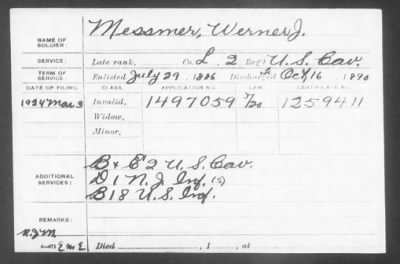 NAME OF SOLDIER: Messmer, Werner J.
SERVICE: Late rank, Co. L, 2 Reg't U.S. Cav.
TERM OF SERVICE: Enlisted July 29, 1886 Discharged Oct 16, 1890
DATE OF FILING. CLASS. APPLICATION NO. LAW. CERTIFICATE NO.
1924 Mar 3 Invalid, 1497059 1259411
Widow,
Minor,
ADDITIONAL SERVICES: B & E 2 U.S. Cav.
D 1 N.J. Inf. (S)
B 18 U.S. Inf.
REMARKS:
N.J.M.
Died , 1 , at